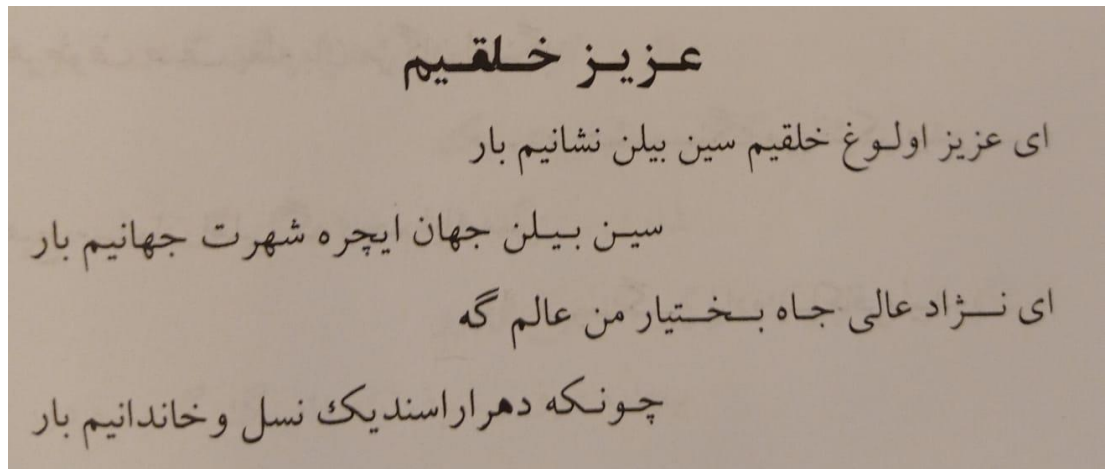 عزیز خلقیم
ای عزیز اولوغ خلقیم سین بیلن نشانیم بار
سین بیلن جهان ایچره شهرت جهانیم بار
ای نژاد عالی جاه بختیار من عالم گه
چونکه دهراراسندیک نسل و خاندانیم بار